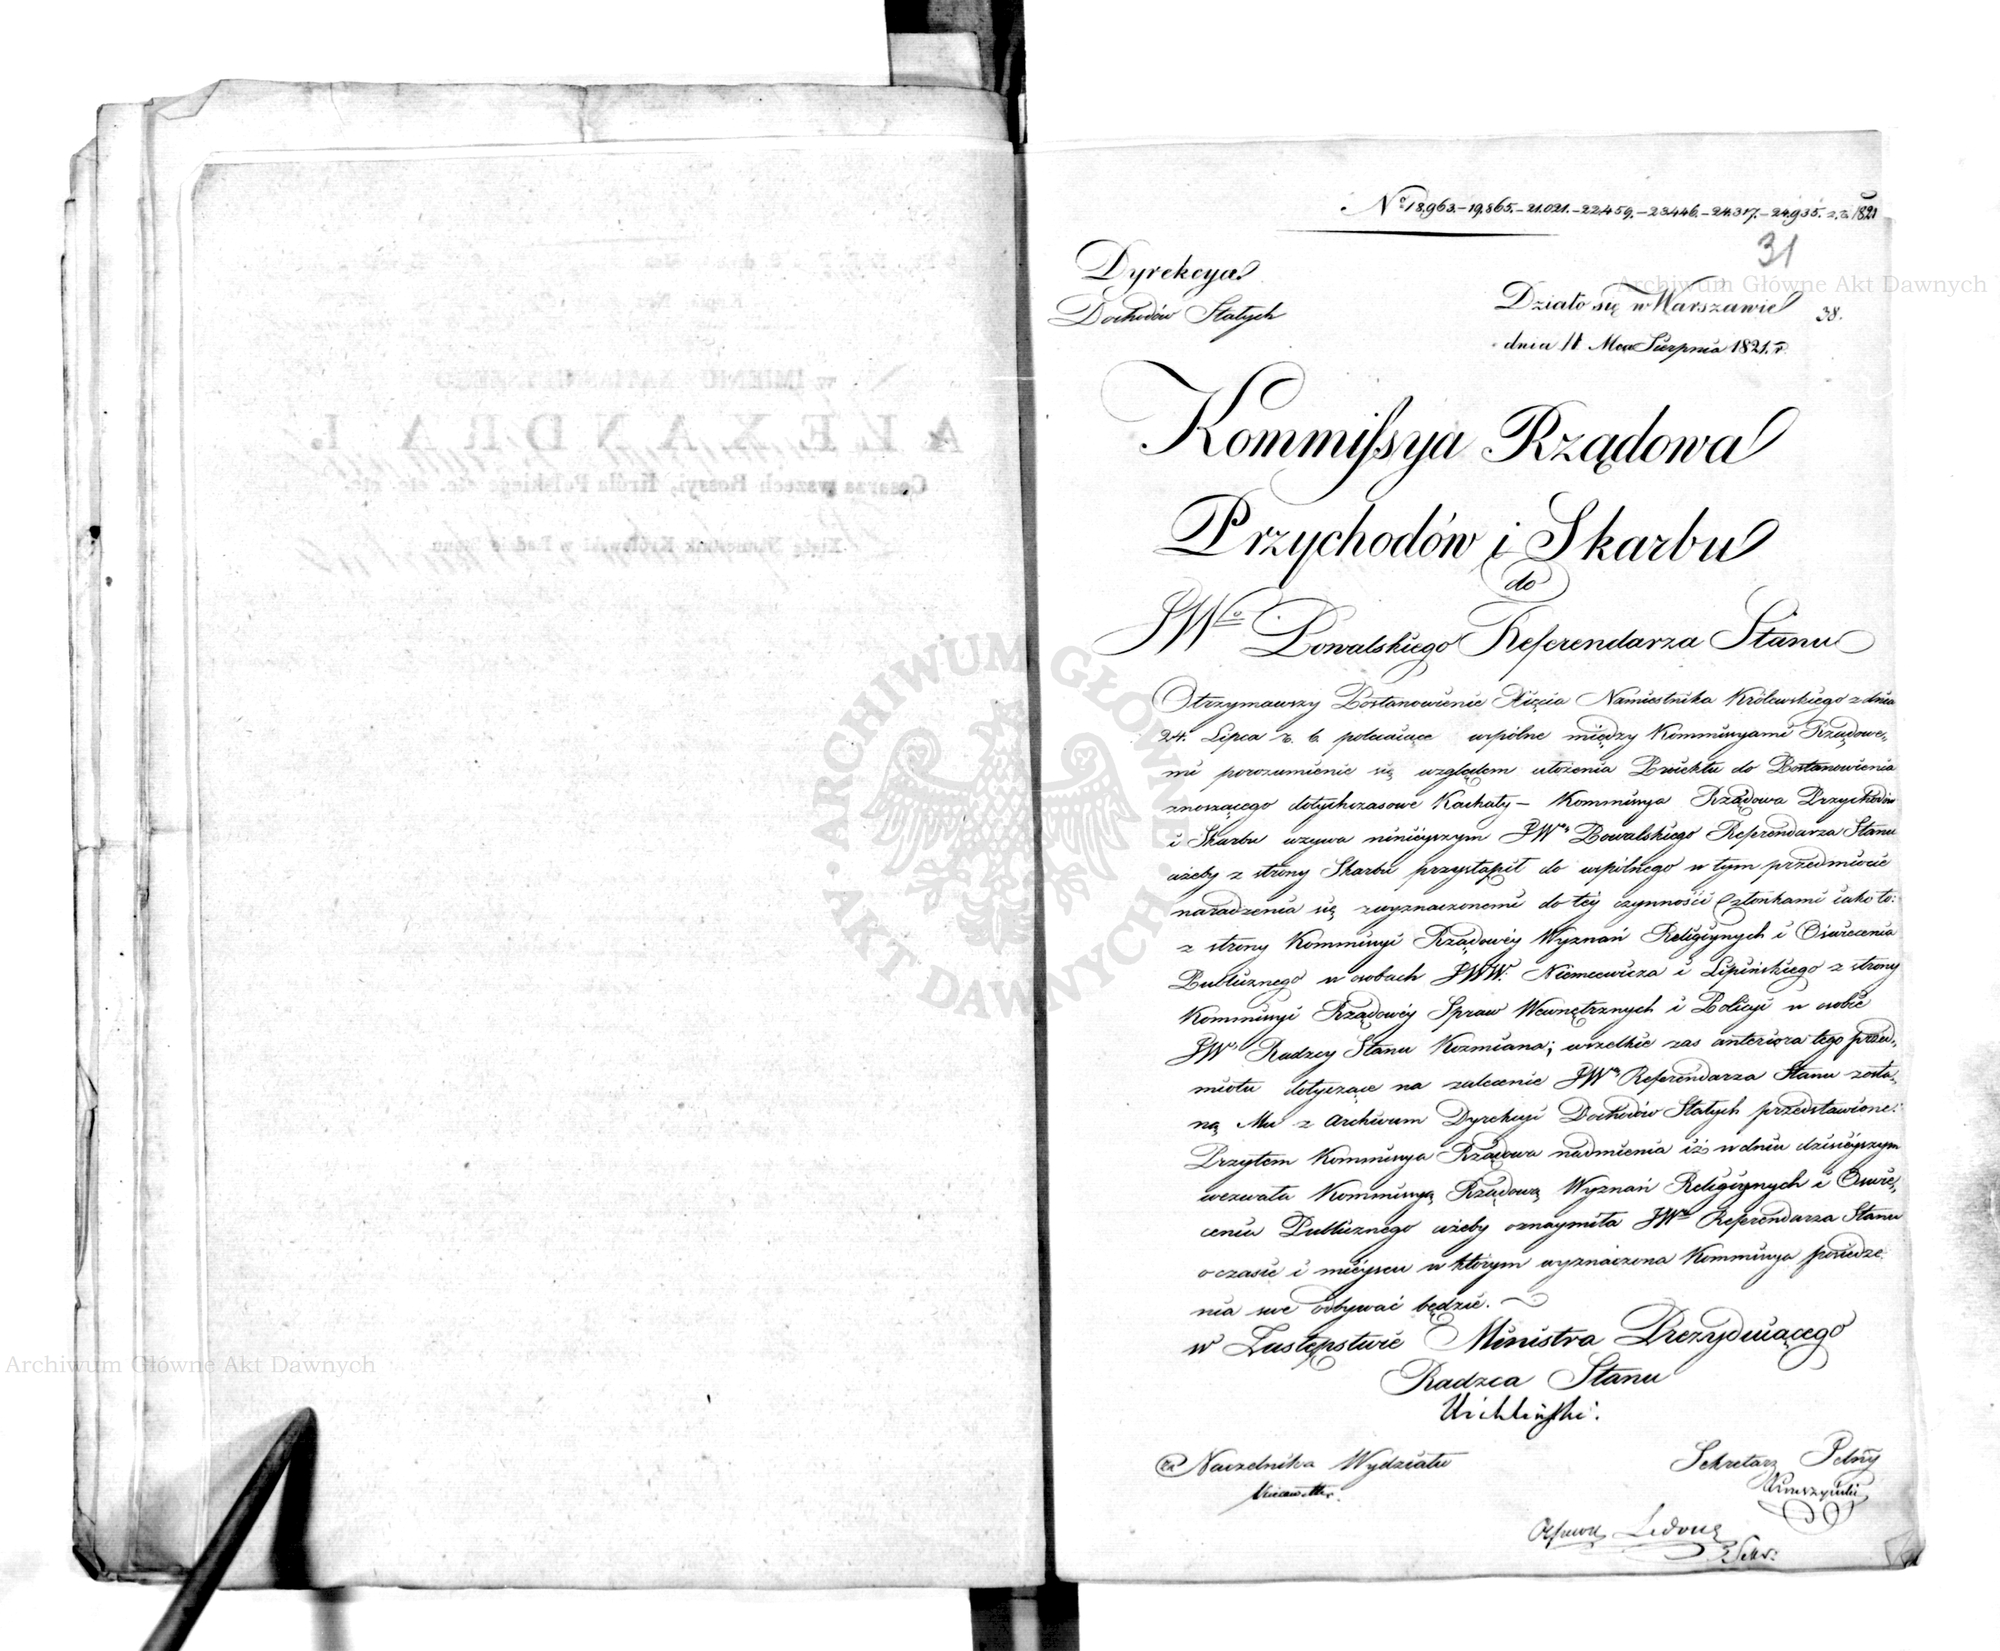 No 18,963.–19,865.–21.021.–22,459.–23446.–24.317.–24,935. 1821
31
Dyrekcya
Dochodów Stałych
Działo się w Warszawie
38.
dnia 11 Mca Sierpnia 1821. r.
Kommissya Rządowa
Przychodów i Skarbu
do
JWo Powalskiego Referendarza Stanu
Otrzymawszy Postanowienie Xięcia Namiestnika Królewskiego z dnia
24. Lipca r. b. polecaiące wspólne między Kommissyami Rządowe-
mi porozumienie się względem ułożenia Proiektu do Postanowienia
znoszącego dotychczasowe Kachały – Kommissya Rządowa Przychodów
i Skarbu wzywa ninieyszym JWo Powalskiego Referendarza Stanu
ażeby z strony Skarbu przystąpił do wspólnego w tym przedmiocie
naradzenia się z wyznaczonemi do téy czynności Członkami iako to:
z strony Kommissyi Rządowéy Wyznań Religiynych i Oświecenia
Publicznego w osobach JWW. Niemcewicza i Lipińskiego z strony
Kommissyi Rządowéy Spraw Wewnętrznych i Policyi w osobie
JWo Radzcy Stanu Kozmiana; wszelkie zas anteriora tego przed-
miotu dotyczące na zalecenie JWo Referendarza Stanu zosta-
ną Mu z Archiwum Dyrekcyi Dochodów Stałych przedstawione.
Przytem Kommissya Rządowa nadmienia iż w dniu dzisieyszym
wezwała Kommissyą Rządową Wyznań Religiynych i Oświe-
cenia Publicznego ażeby oznaymiła JWo Referendarza Stanu
o czasie i mieyscu w którym wyznaczona Kommissya posiedze-
nia swe odbywać będzie.
w Zastępstwie Ministra Prezyduiącego
Radzca Stanu
za Naczelnika Wydziału
Sekretarz Pełny
ARCHIWUM GŁÓWNE AKT DAWNYCH
Archiwum Główne Akt Dawnych
Archiwum Główne Akt Dawnych